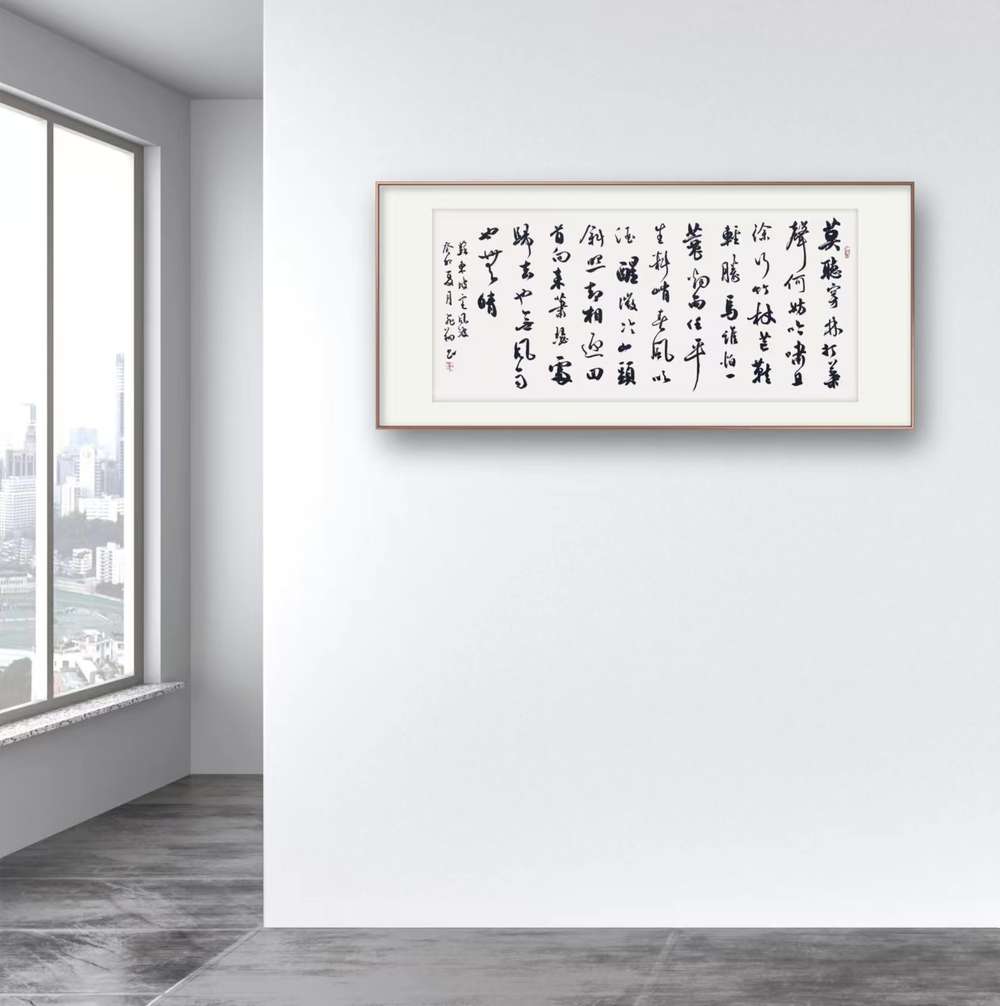 莫聽穿林打葉
聲何妨吟嘯且
徐行竹杖芒鞋
輕勝馬誰怕一
蓑烟雨任平
生料峭春風吹
酒醒微冷山頭
斜照却相迎回
首向來蕭瑟處
歸去也無風雨
也無晴
蘇東坡定風波
癸卯夏月